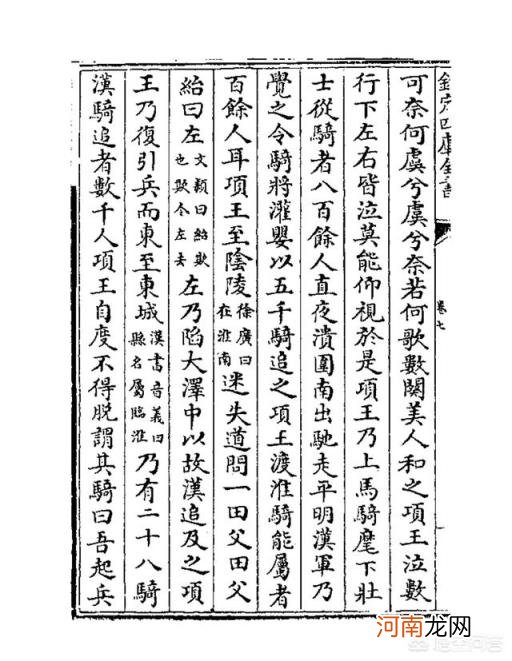 欽定四庫全書
卷七
可奈何虞兮虞兮奈若何歌數闋美人和之項王泣數
行下左右皆泣莫能仰視於是項王乃上馬騎麾下壯
士從騎者八百餘人直夜潰圍南出馳走平明漢軍乃
覺之令騎將灌嬰以五千騎追之項王渡淮騎能屬者
百餘人耳項王至陰陵徐廣曰在淮南迷失道問一田父田父
紿曰左文穎曰紿欺也欺令左去左乃陷大澤中以故漢追及之項
王乃復引兵而東至東城漢書音義曰縣名屬臨淮乃有二十八騎
漢騎追者數千人項王自度不得脫謂其騎曰吾起兵
河南龙网